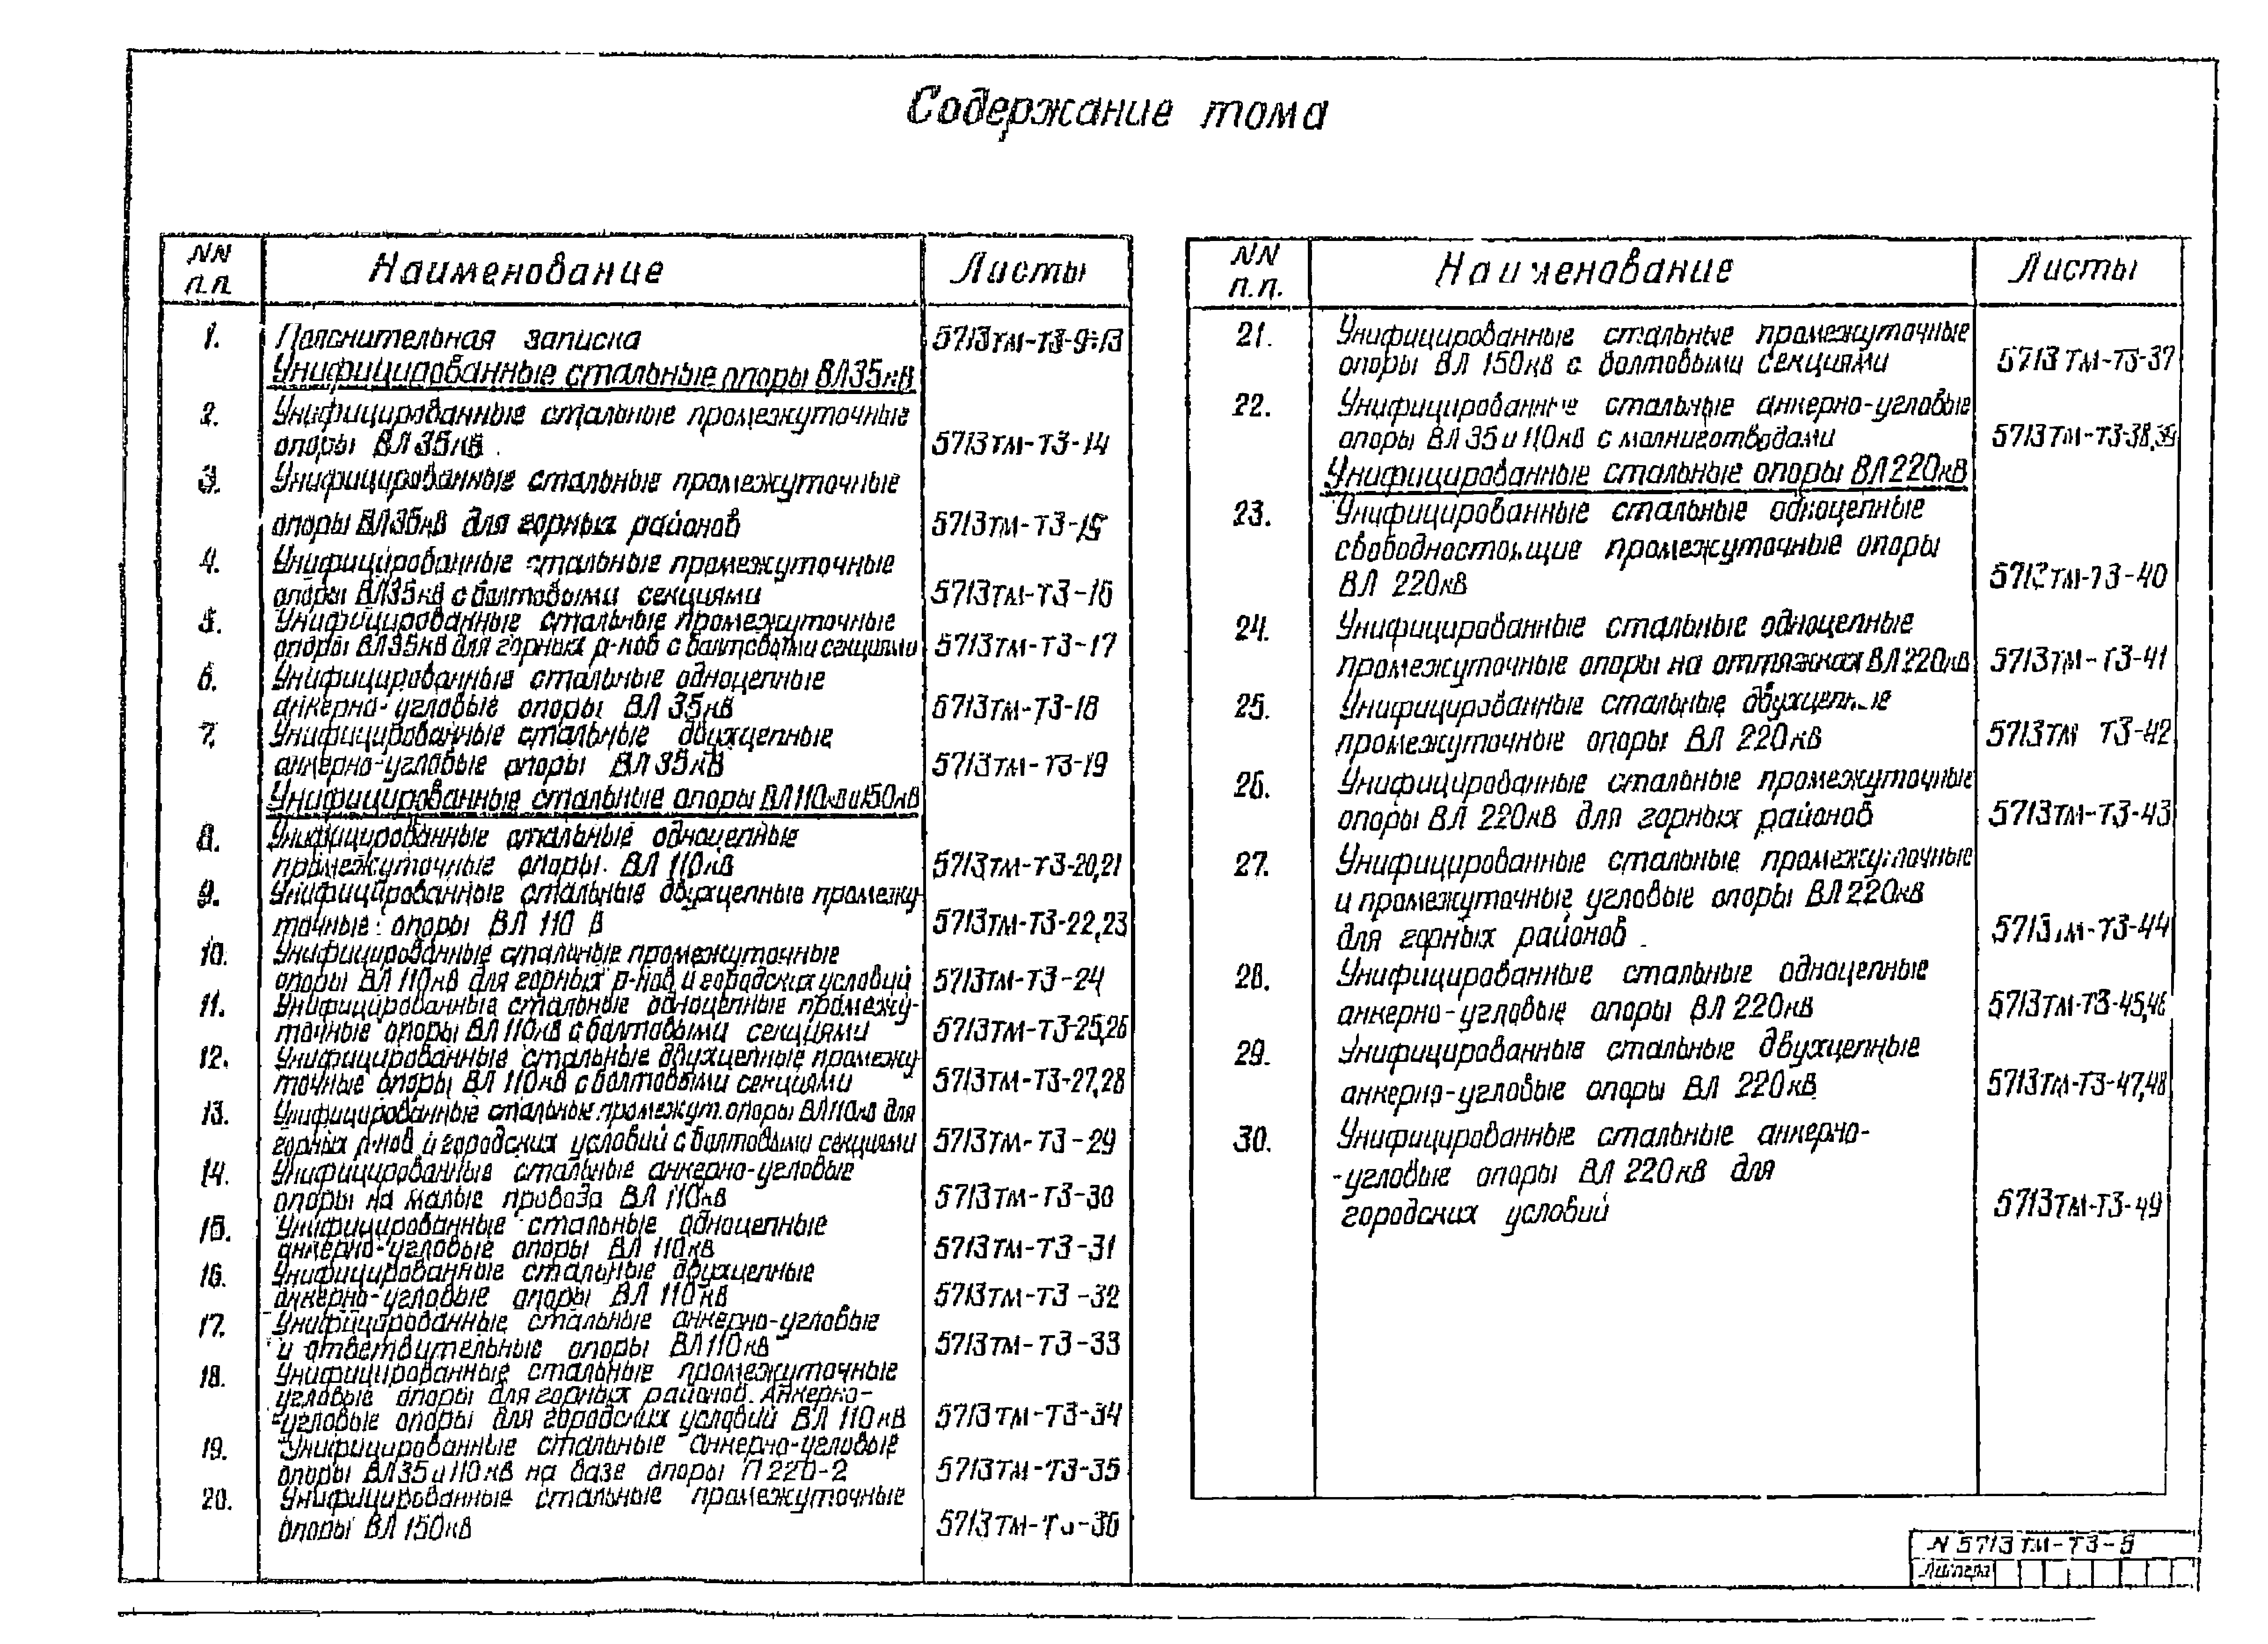 Содержание тома
NN п.п. Наименование Листы
1. Пояснительная записка 5713тм-т3-9÷13
Унифицированные стальные опоры ВЛ35кв
2. Унифицированные стальные промежуточные
опоры ВЛ 35кв. 5713тм-т3-14
3. Унифицированные стальные промежуточные
опоры ВЛ35кв для горных районов 5713тм-т3-15
4. Унифицированные стальные промежуточные
опоры ВЛ35кв с болтовыми секциями 5713тм-т3-16
5. Унифицированные стальные промежуточные
опоры ВЛ35кв для горных р-нов с болтовыми секциями 5713тм-т3-17
6. Унифицированные стальные одноцепные
анкерно-угловые опоры ВЛ 35кв 5713тм-т3-18
7. Унифицированные стальные двухцепные
анкерно-угловые опоры ВЛ 35кв 5713тм-т3-19
Унифицированные стальные опоры ВЛ110кв и 150кв
8. Унифицированные стальные одноцепные
промежуточные опоры ВЛ 110кв 5713тм-т3-20,21
9. Унифицированные стальные двухцепные промежу-
точные опоры ВЛ 110 В 5713тм-т3-22,23
10. Унифицированные стальные промежуточные
опоры ВЛ 110кв для горных р-нов и городских условий 5713тм-т3-24
11. Унифицированные стальные одноцепные промежу-
точные опоры ВЛ 110кв с болтовыми секциями 5713тм-т3-25,26
12. Унифицированные стальные двухцепные промежу-
точные опоры ВЛ 110кв с болтовыми секциями 5713тм-т3-27,28
13. Унифицированные стальные промежут. опоры ВЛ110кв для
горных р-нов и городских условий с болтовыми секциями 5713тм-т3-29
14. Унифицированные стальные анкерно-угловые
опоры на малые провода ВЛ 110кв 5713тм-т3-30
15. Унифицированные стальные одноцепные
анкерно-угловые опоры ВЛ 110кв 5713тм-т3-31
16. Унифицированные стальные двухцепные
анкерно-угловые опоры ВЛ 110кв 5713тм-т3-32
17. Унифицированные стальные анкерно-угловые
и ответвительные опоры ВЛ110кв 5713тм-т3-33
18. Унифицированные стальные промежуточные
угловые опоры для горных районов. Анкерно-
-угловые опоры для городских условий ВЛ 110кв 5713тм-т3-34
19. Унифицированные стальные анкерно-угловые
опоры ВЛ35и110кв на базе опоры П220-2 5713тм-т3-35
20. Унифицированные стальные промежуточные
опоры ВЛ 150кв 5713тм-т3-36
NN п.п. Наименование Листы
21. Унифицированные стальные промежуточные
опоры ВЛ 150кв с болтовыми секциями 5713тм-т3-37
22. Унифицированные стальные анкерно-угловые
опоры ВЛ 35 и 110кв с молниеотводами 5713тм-т3-38,39
Унифицированные стальные опоры ВЛ220кв
23. Унифицированные стальные одноцепные
свободностоящие промежуточные опоры
ВЛ 220кв 5713тм-т3-40
24. Унифицированные стальные одноцепные
промежуточные опоры на оттяжках ВЛ220кв 5713тм-т3-41
25. Унифицированные стальные двухцепные
промежуточные опоры ВЛ 220кв 5713тм т3-42
26. Унифицированные стальные промежуточные
опоры ВЛ 220кв для горных районов 5713тм-т3-43
27. Унифицированные стальные промежуточные
и промежуточные угловые опоры ВЛ220кв
для горных районов. 5713тм-т3-44
28. Унифицированные стальные одноцепные
анкерно-угловые опоры ВЛ 220кв 5713тм-т3-45,46
29. Унифицированные стальные двухцепные
анкерно-угловые опоры ВЛ 220кв 5713тм-т3-47,48
30. Унифицированные стальные анкерно-
-угловые опоры ВЛ 220кв для
городских условий 5713тм-т3-49
N 5713тм-т3-5
Литера